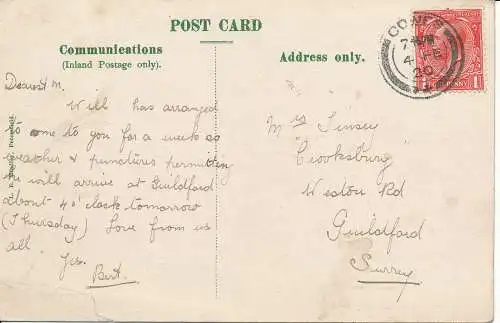 POST CARD
Communications
(Inland Postage only).
Address only.
COWES
4 FE
20
PENNY
Dearest M.
Will has arranged
to come to you for a week so
weather & punctures permitting
he will arrive at Guildford
about 4 o'clock tomorrow
(Thursday) Love from us
all. Yrs.
Bert.
Mrs
Crooksbury
Weston Rd
Guildford
Surrey
Petersfield.